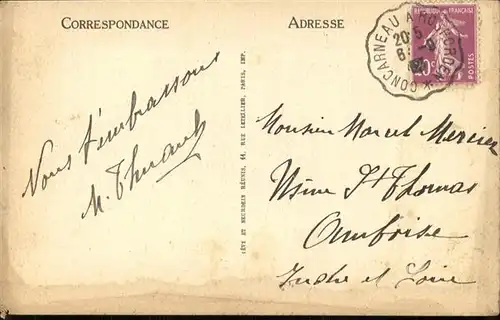 CORRESPONDANCE
ADRESSE
RÉPUBLIQUE FRANÇAISE
CONCARNEAU A ROSPORDEN *
20·5
POSTES
Nous t'embrassons
M. Thuault
LÉVY ET NEURDEIN RÉUNIS, 44, RUE LETELLIER, PARIS, IMP.
Monsieur Marcel Mercier
Usine St Thomas
Amboise
Indre et Loire